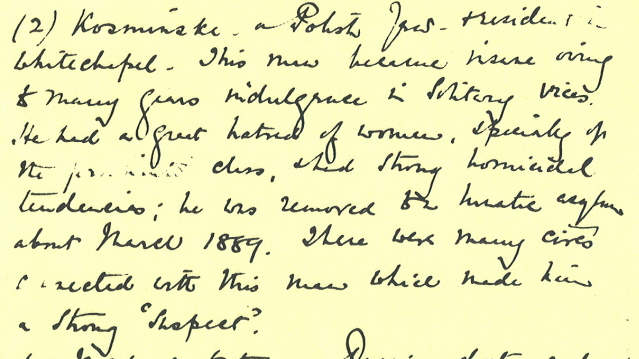 (2) Kosminski - a Polish Jew - & resident in
Whitechapel. This man became insane owing
to many years indulgence in solitary vices.
He had a great hatred of women, specially of
the prostitute class, & had strong homicidal
tendencies; he was removed to a lunatic asylum
about March 1889. There were many circs
connected with this man which made him
a strong "suspect".